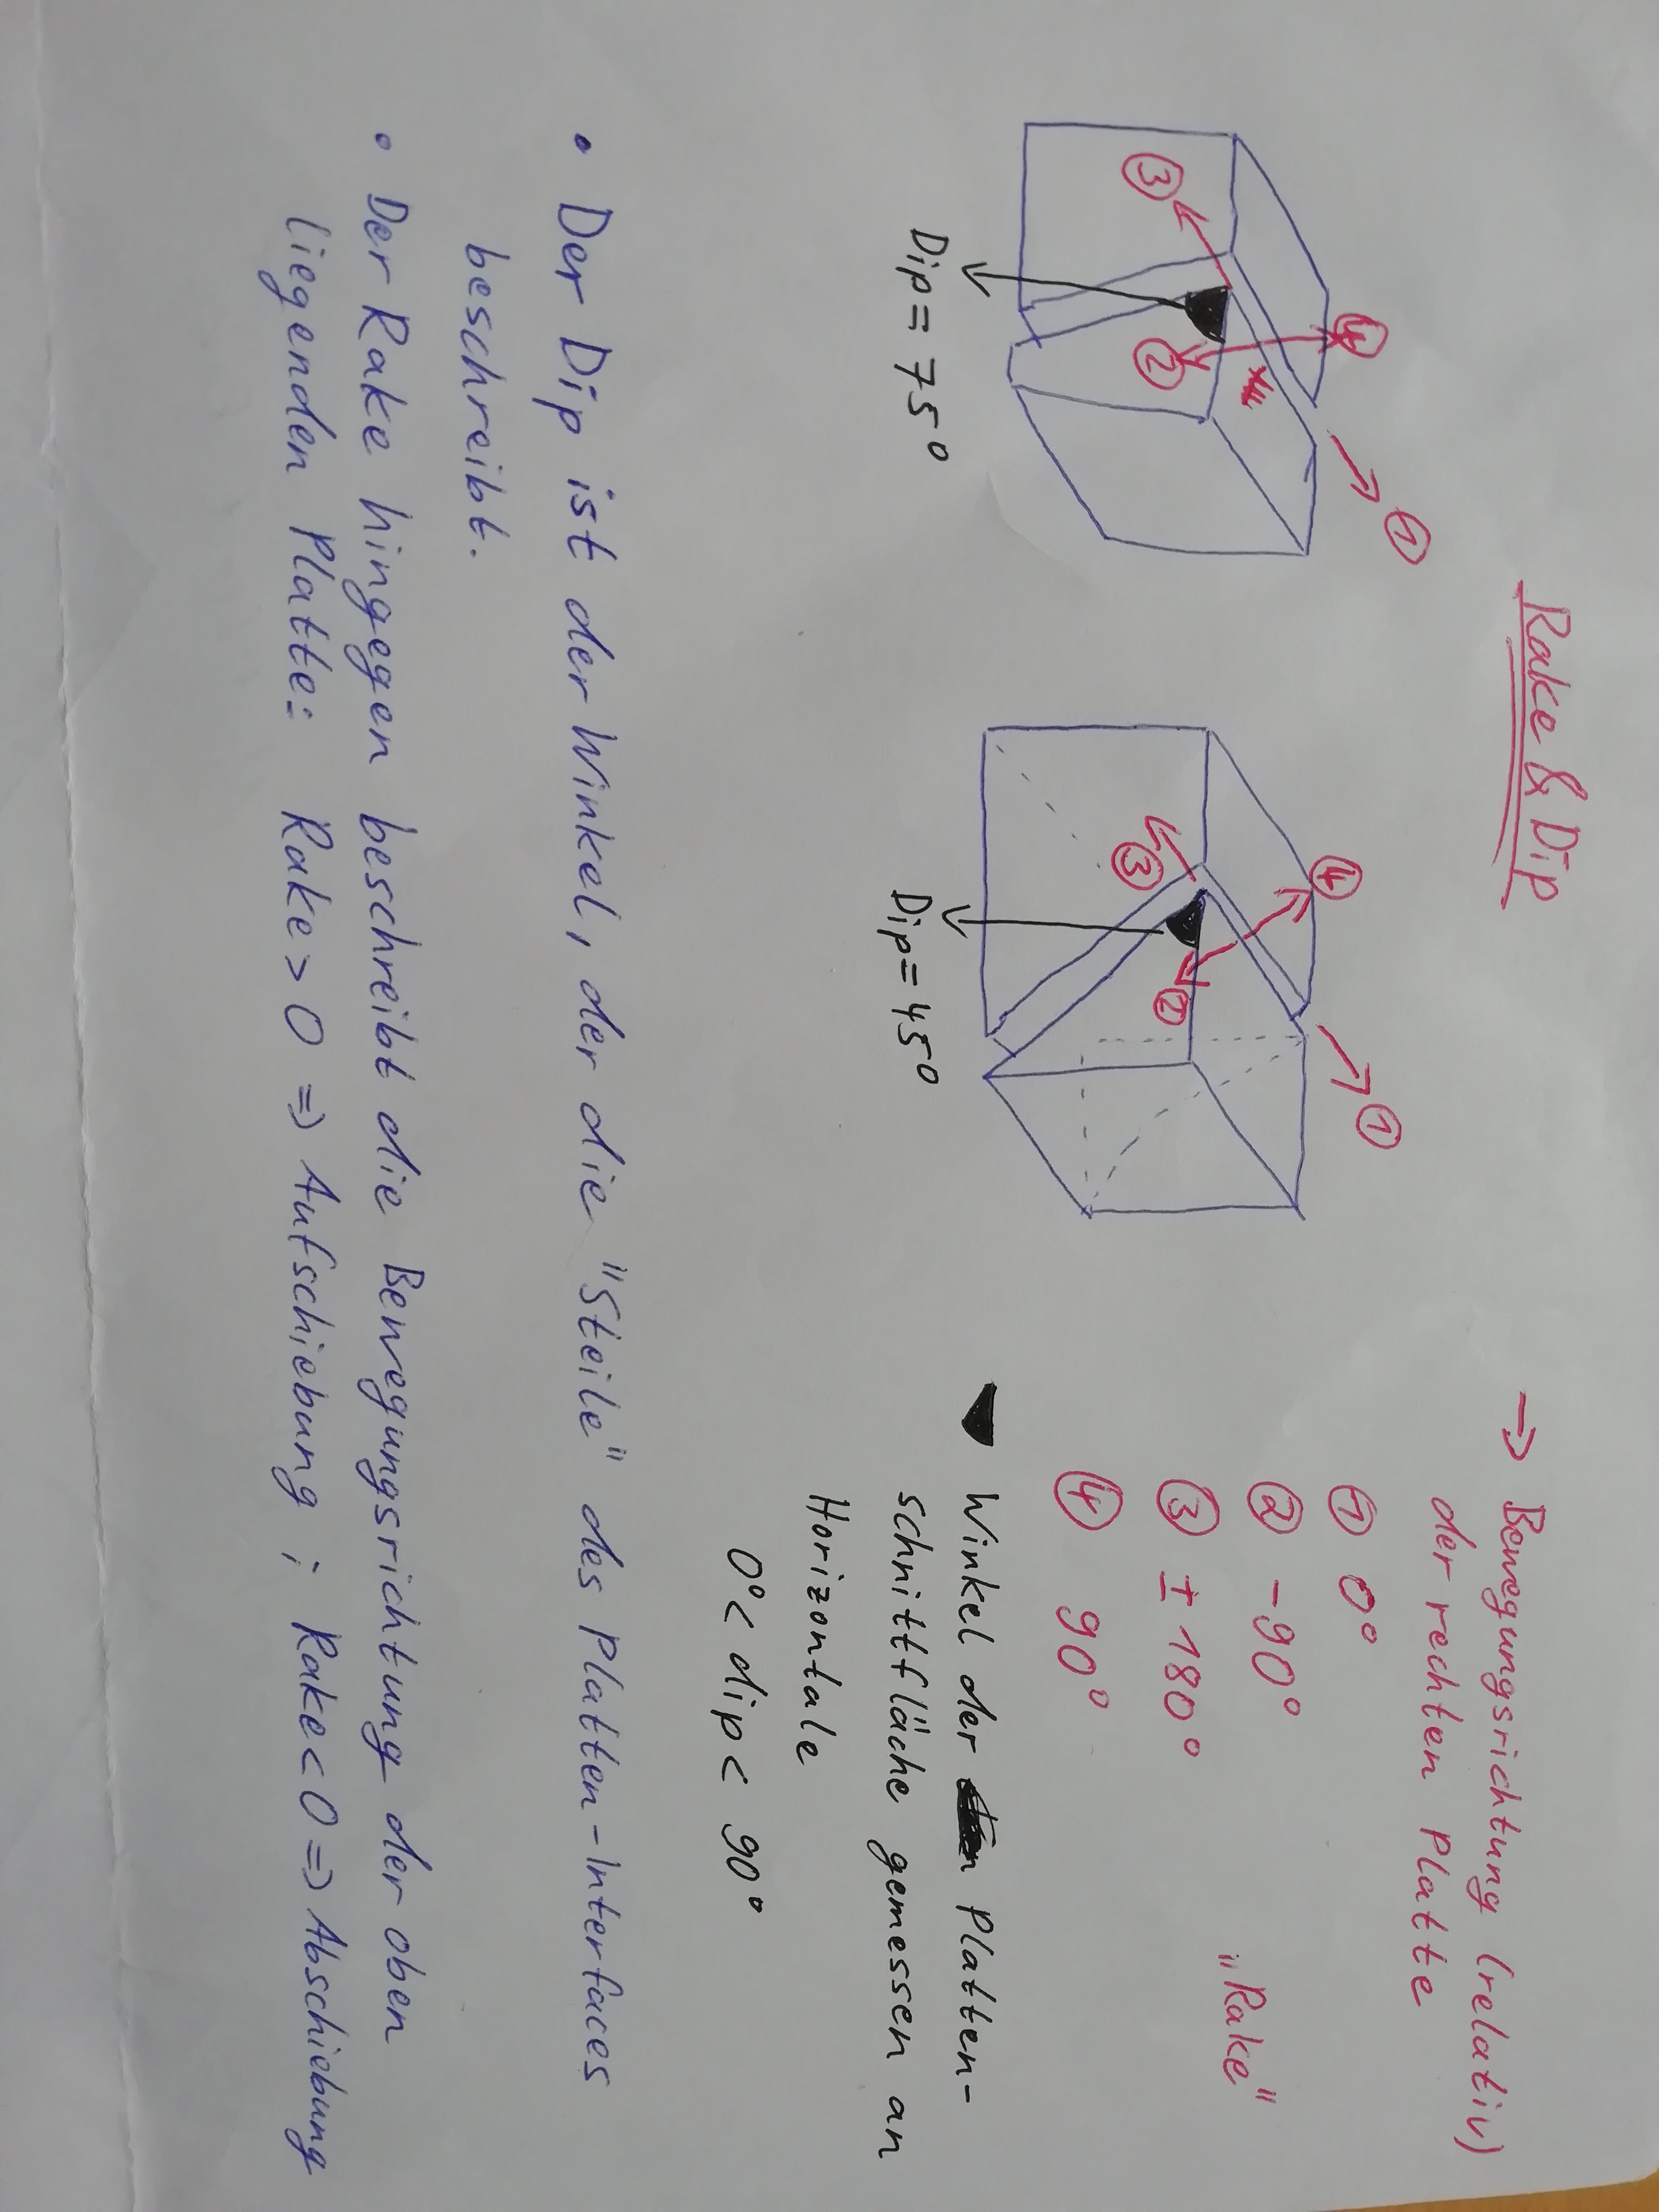 Rake & Dip
④ ①
③ ②
Dip = 75°
④ ①
③ ②
Dip = 45°
=> Bewegungsrichtung (relativ)
der rechten Platte
① 0°
② -90°
„Rake"
③ ± 180°
④ 90°
Winkel der Platten-
schnittfläche gemessen an
Horizontale
0° < dip < 90°
• Der Dip ist der Winkel, der die "Steile" des Platten-Interfaces
beschreibt.
• Der Rake hingegen beschreibt die Bewegungsrichtung der oben
liegenden Platte: Rake > 0 => Aufschiebung ; Rake < 0 => Abschiebung